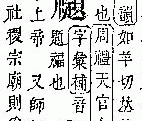 韻如羊切祛
也周禮天官
字彙補音
題福也
上帝又師
社稷宗廟則